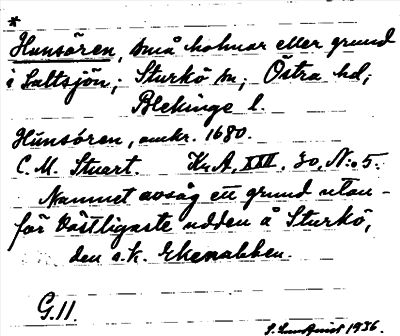 *
Hunsören, små holmar eller grund
i Saltsjön; Sturkö sn; Östra hd;
Blekinge l.
Hünsören, omkr. 1680.
C. M. Stuart. Kr. A, XXI, 30, N:o 5.
Namnet avsåg ett grund utan-
för västligaste udden å Sturkö,
den s.k. Ekenabben.
G. 11.
S. Lundquist 1936.